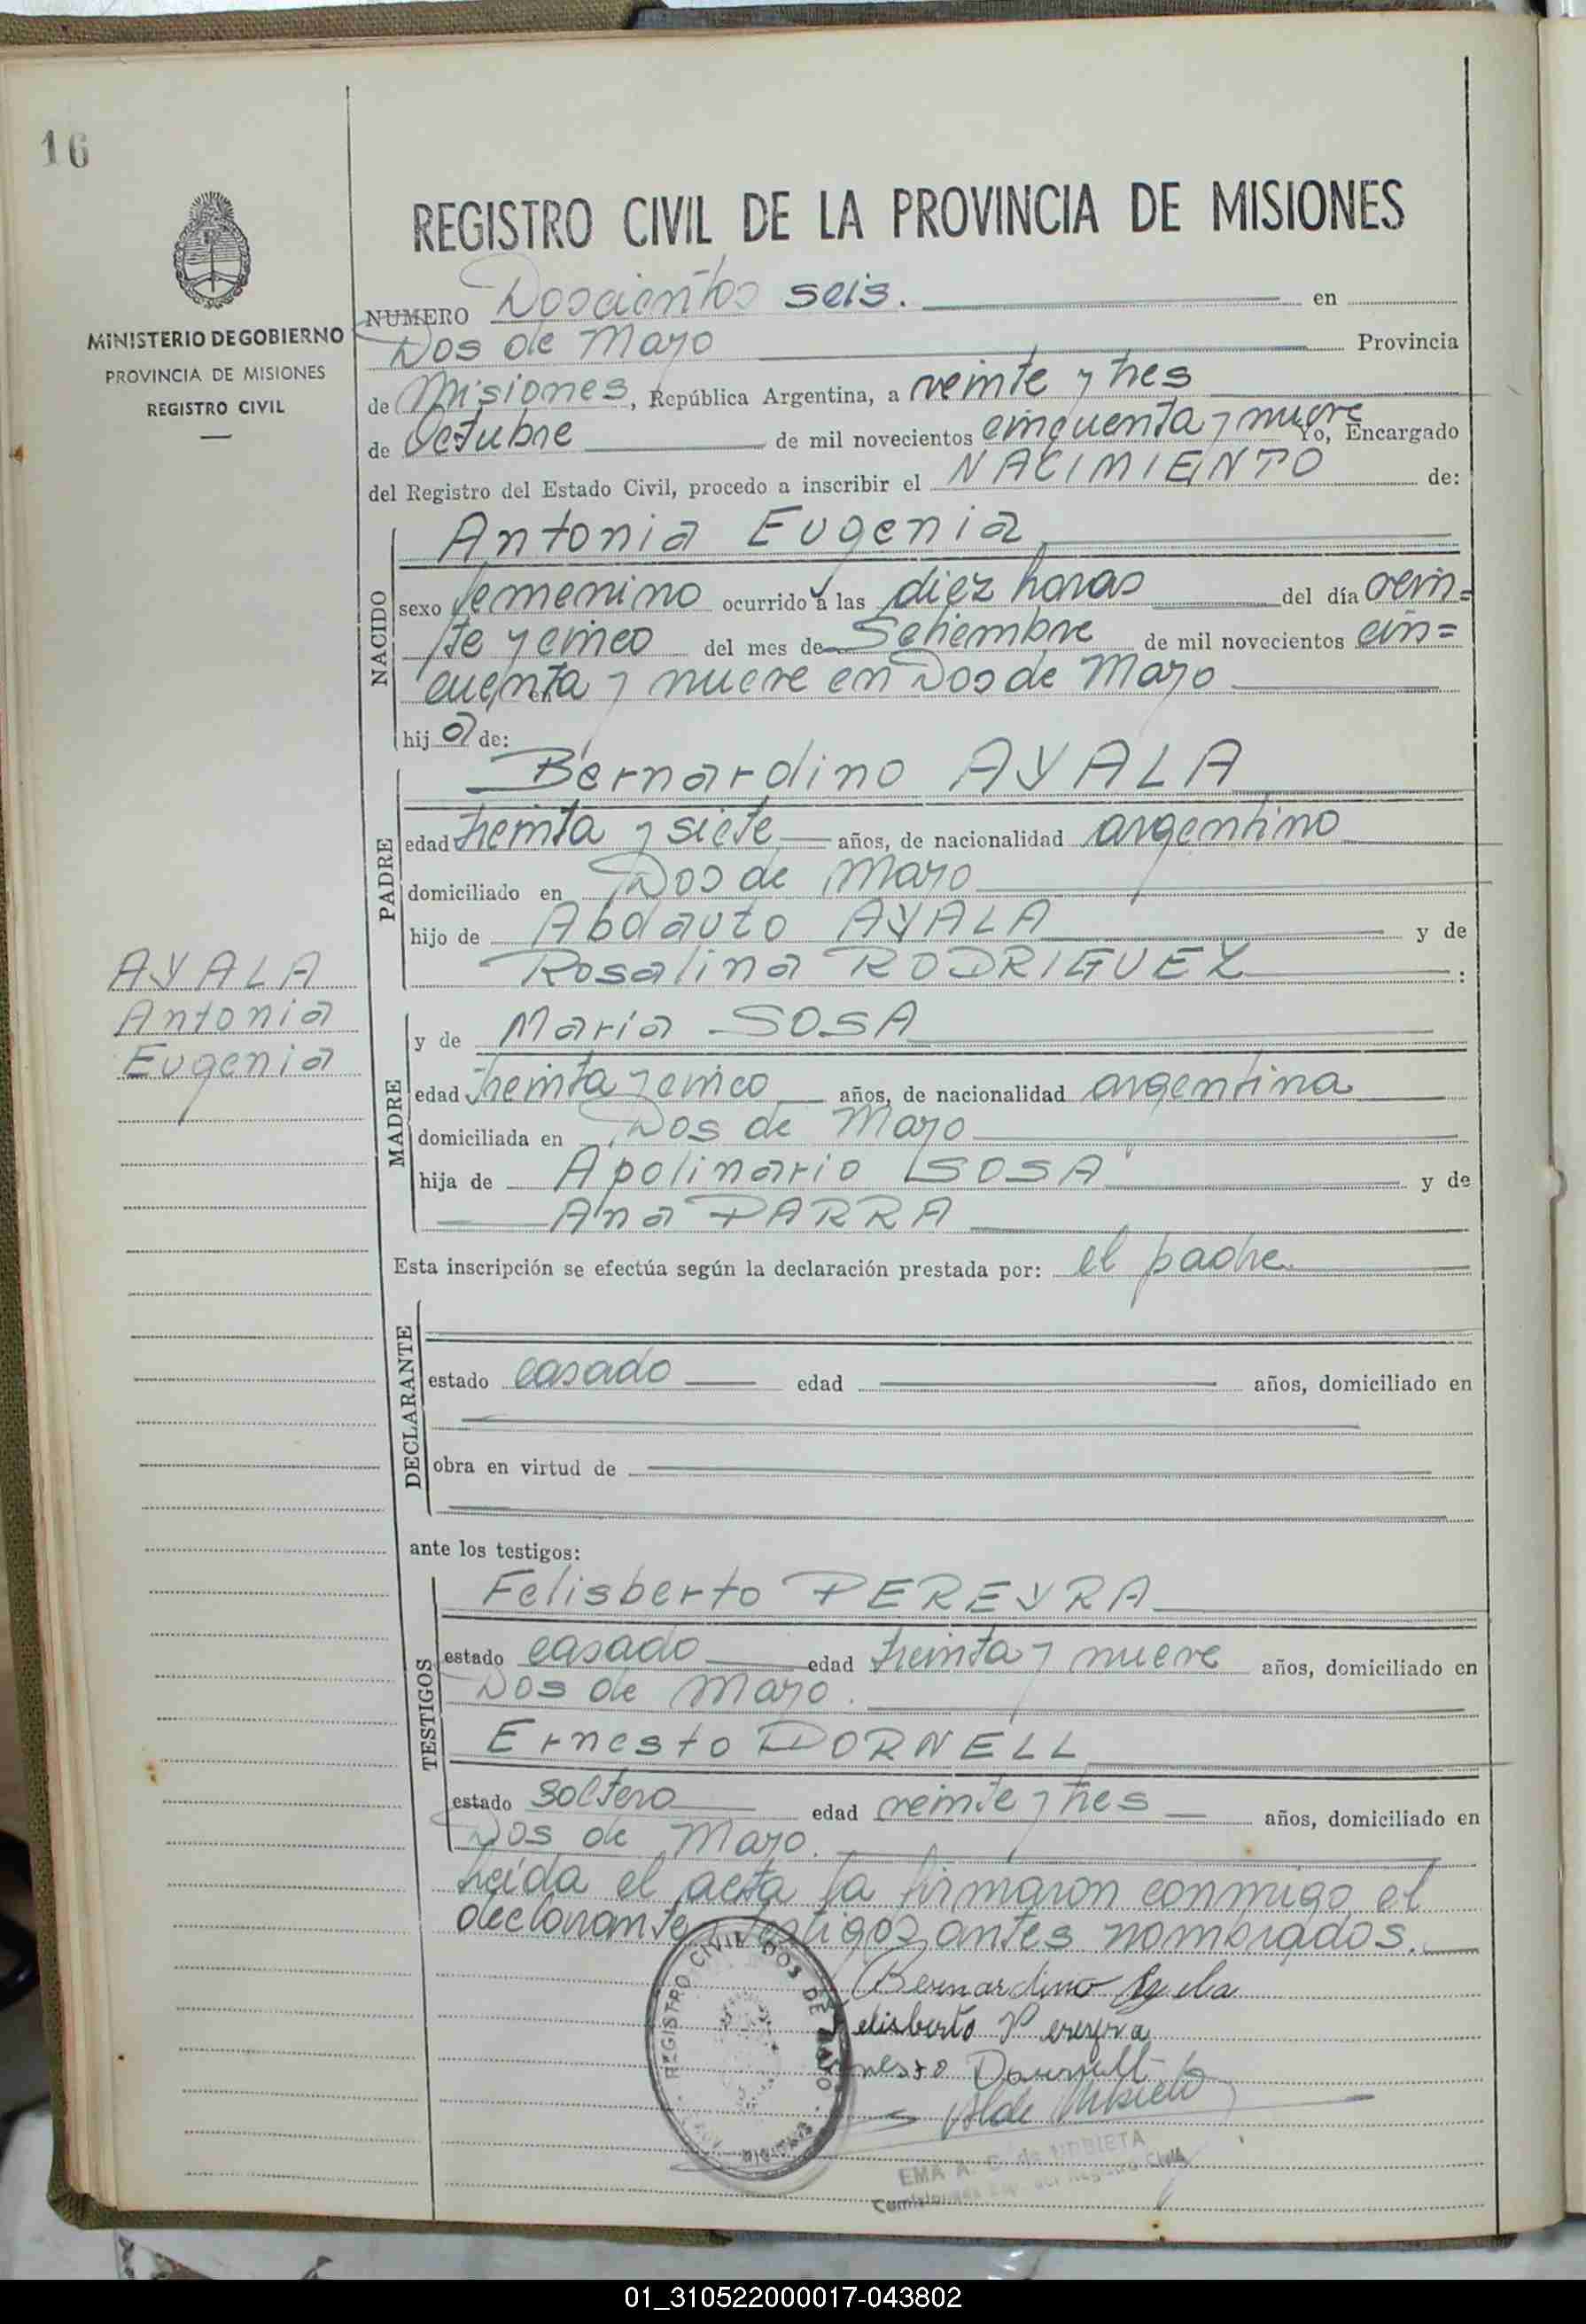 16
MINISTERIO DE GOBIERNO
PROVINCIA DE MISIONES
REGISTRO CIVIL
REGISTRO CIVIL DE LA PROVINCIA DE MISIONES
NUMERO Doscientos seis. en
Dos de Mayo Provincia
de Misiones, República Argentina, a veinte y tres
de Octubre de mil novecientos cincuenta y nueve Yo, Encargado
del Registro del Estado Civil, procedo a inscribir el NACIMIENTO de:
NACIDO
Antonia Eugenia
sexo femenino ocurrido a las diez horas del día vein=
te y cinco del mes de Setiembre de mil novecientos cin=
cuenta y nueve en Dos de Mayo
hija de:
PADRE
Bernardino AYALA
edad treinta y siete años, de nacionalidad argentino
domiciliado en Dos de Mayo
hijo de Abdauto AYALA y de
Rosalina RODRIGUEZ :
AYALA
Antonia
Eugenia
MADRE
y de Maria SOSA
edad treinta y cinco años, de nacionalidad argentina
domiciliada en Dos de Mayo
hija de Apolinario SOSA y de
Ana PARRA
Esta inscripción se efectúa según la declaración prestada por: el padre
DECLARANTE
estado casado edad años, domiciliado en
obra en virtud de
ante los testigos:
TESTIGOS
Felisberto PEREYRA
estado casado edad treinta y nueve años, domiciliado en
Dos de Mayo.
Ernesto DORNELL
estado soltero edad veinte y tres años, domiciliado en
Dos de Mayo.
Leída el acta la firmaron conmigo el
declarante y testigos antes nombrados.
REGISTRO CIVIL DOS DE MAYO
Bernardino Ayala
Felisberto Pereyra
Ernesto Dornell
EMA A. C. de URBIETA
01_310522000017-043802